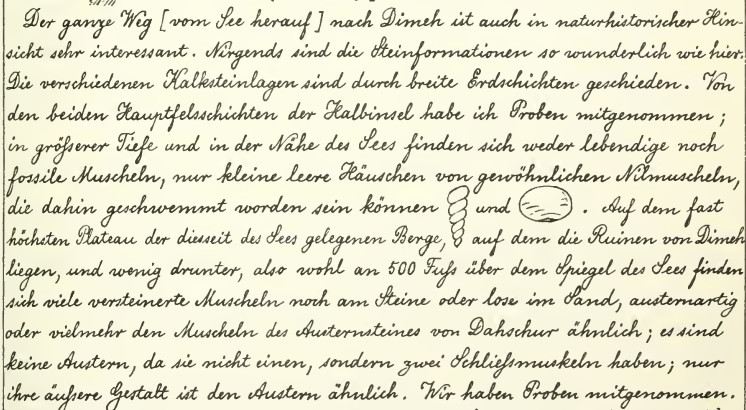 Der ganze Weg [vom See herauf] nach Dimeh ist auch in naturhistorischer Hin-
sicht sehr interessant. Nirgends sind die Steinformationen so wunderlich wie hier.
Die verschiedenen Kalksteinlagen sind durch breite Erdschichten geschieden. Von
den beiden Hauptfelsschichten der Halbinsel habe ich Proben mitgenommen;
in größerer Tiefe und in der Nähe des Sees finden sich weder lebendige noch
fossile Muscheln, nur kleine leere Häuschen von gewöhnlichen Nilmuscheln,
die dahin geschwemmt worden sein können und . Auf dem fast
höchsten Plateau der diesseit des Sees gelegenen Berge, auf dem die Ruinen von Dimeh
liegen, und wenig drunter, also wohl an 500 Fuß über dem Spiegel des Sees finden
sich viele versteinerte Muscheln noch am Steine oder lose im Sand, austernartig
oder vielmehr den Muscheln des Austernsteines von Dahschur ähnlich; es sind
keine Austern, da sie nicht einen, sondern zwei Schließmuskeln haben; nur
ihre äußere Gestalt ist den Austern ähnlich. Wir haben Proben mitgenommen.